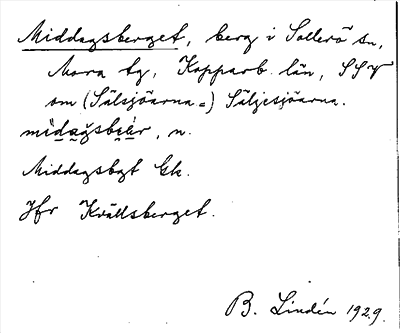 Middagsberget, berg i Sollerö sn,
Mora tg, Kopparb. län, SSV
om (Sälsjöarna =) Säljesjöarna.
mìdagsbè̦r, n.
Middagsbgt Gk.
Jfr Kvällsberget.
B. Lindén 1929.